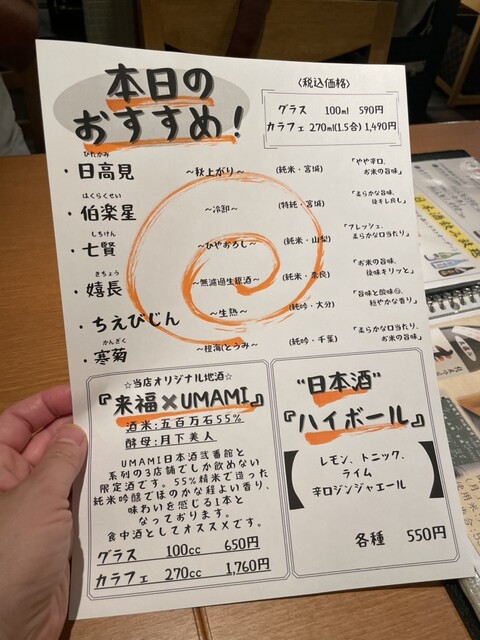 本日の
おすすめ！
〈税込価格〉
グラス 100ml 590円
カラフェ 270ml(1.5合) 1,490円
ひたかみ
・日高見 ～秋上がり～ (純米・宮城) 「やや辛口、
お米の旨味」
はくらくせい
・伯楽星 ～冷卸～ (特純・宮城) 「柔らかな旨味、
後キレ良し」
しちけん
・七賢 ～ひやおろし～ (純米・山梨) 「フレッシュ、
柔らかな口当たり」
きちょう
・嬉長 ～無濾過生原酒～ (純米・奈良) 「お米の旨味、
後味キリッと」
・ちえびじん ～生熟～ (純吟・大分) 「旨味と酸味◎、
穏やかな香り」
かんぎく
・寒菊 ～橙海(とうみ)～ (純吟・千葉) 「柔らかな口当たり、
お米の旨味」
☆当店オリジナル地酒☆
『来福×UMAMI』
酒米:五百万石55%
酵母:月下美人
UMAMI日本酒弐番館と
系列の3店舗でしか飲めない
限定酒です。55%精米で造った
純米吟醸でほのかな程よい香り、
味わいを感じる1本と
なっております。
食中酒としてオススメです。
グラス 100cc 650円
カラフェ 270cc 1,760円
"日本酒"
『ハイボール』
レモン、トニック、
ライム
辛口ジンジャエール
各種 550円